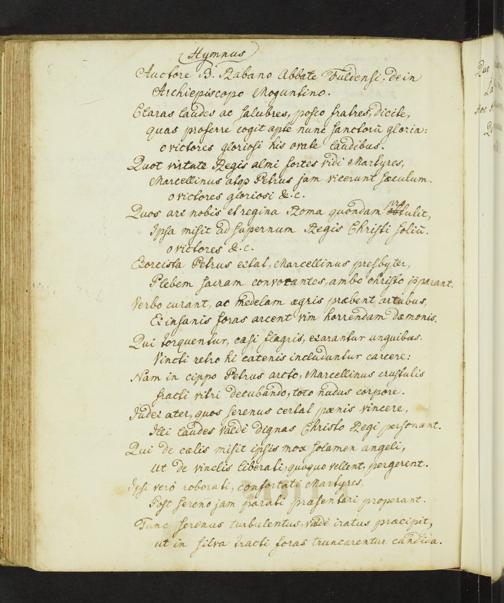 Hymnus
Auctore B. Rabano Abbate Fuldensi, dein
Archiepiscopo Moguntino.
Claras laudes ac salubres, posco fratres, dicite,
quas proferre cogit apte nunc sanctorū gloria:
o victores gloriosi his ovate laudibus.
Quot virtute Regis almi fortes visi Martyres,
Marcellinus atqȝ Petrus jam vicerunt sæculum.
o victores gloriosi &c.
Quos ars nobis et regina Roma quondam
Ipsa misit ad supernum Regis Christi soliū.
o victores &c.
Exorcista Petrus extat, Marcellinus presbyter,
Plebem sacram convocantes, ambo christo
Verbo curant, ac medelam ægris præbent artubus,
Et insanis foras arcent vim horrendam dæmonis.
Qui torquentur, cæsi flagris, exarantur unguibus.
Vincti retro hi catenis includuntur carcere:
Nam in cippo Petrus arcto, Marcellinus crustulis
fracti vitri decubando, toto nudus corpore.
Judex ater, quos serenus certat pænis vincere,
Isti laudes valdè dignas Christo Regi personant.
Qui de cælis misit ipsis mox solamen angeli,
ut de vinclis liberati, quoquo vellent, pergerent.
Ipsi verò roborati, confortati Martyres
Post sereno jam parati præsentari properant.
Tunc serenus turbulentus, valdè iratus præcipit,
ut in silva tracti foras truncarentur candida.